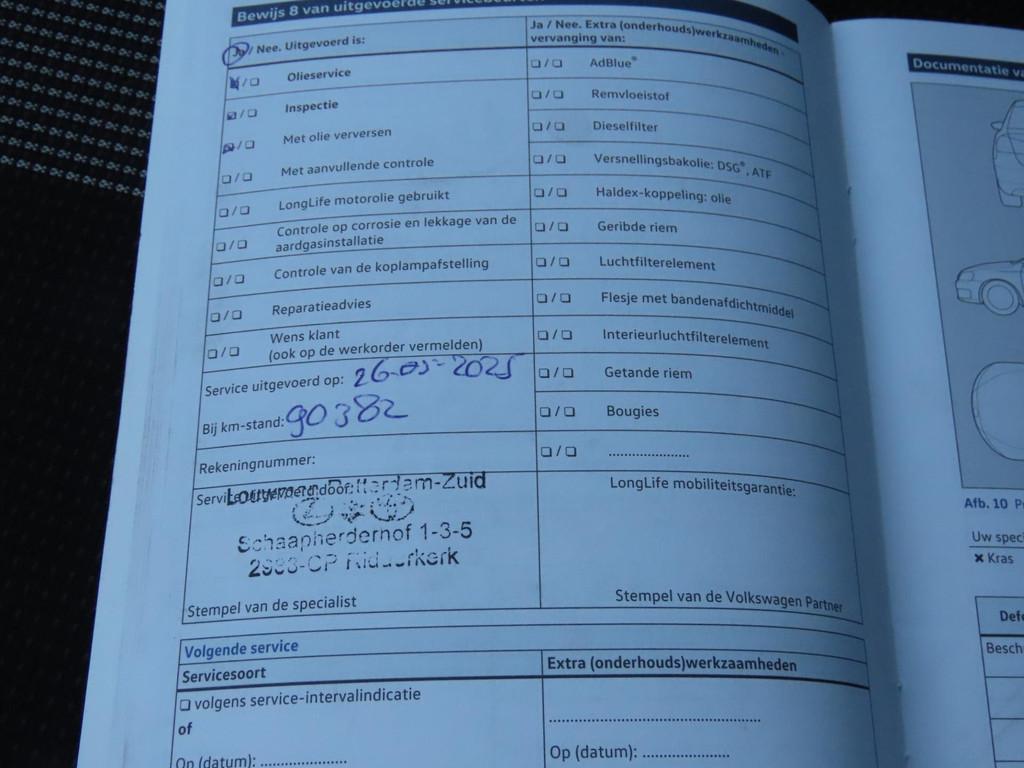 Bewijs 8 van uitgevoerde
Ja / Nee. Uitgevoerd is:
❏ / ❏ Olieservice
❏ / ❏ Inspectie
❏ / ❏ Met olie verversen
❏ / ❏ Met aanvullende controle
❏ / ❏ LongLife motorolie gebruikt
❏ / ❏ Controle op corrosie en lekkage van de
aardgasinstallatie
❏ / ❏ Controle van de koplampafstelling
❏ / ❏ Reparatieadvies
❏ / ❏ Wens klant
(ook op de werkorder vermelden)
Service uitgevoerd op: 26-05-2025
Bij km-stand: 90382
Rekeningnummer:
Service uitgevoerd door:
Louwman Rotterdam-Zuid
Schaapherderhof 1-3-5
2983-CP Ridderkerk
Stempel van de specialist
Ja / Nee. Extra (onderhouds)werkzaamheden -
vervanging van:
❏ / ❏ AdBlue®
❏ / ❏ Remvloeistof
❏ / ❏ Dieselfilter
❏ / ❏ Versnellingsbakolie: DSG®, ATF
❏ / ❏ Haldex-koppeling: olie
❏ / ❏ Geribde riem
❏ / ❏ Luchtfilterelement
❏ / ❏ Flesje met bandenafdichtmiddel
❏ / ❏ Interieurluchtfilterelement
❏ / ❏ Getande riem
❏ / ❏ Bougies
❏ / ❏ .....................
LongLife mobiliteitsgarantie:
Stempel van de Volkswagen Partner
Volgende service
Servicesoort
❏ volgens service-intervalindicatie
of
Op (datum): .....................
Extra (onderhouds)werkzaamheden
.....................................................
Op (datum): .....................
Documentatie
Afb. 10
Uw
✖ Kras